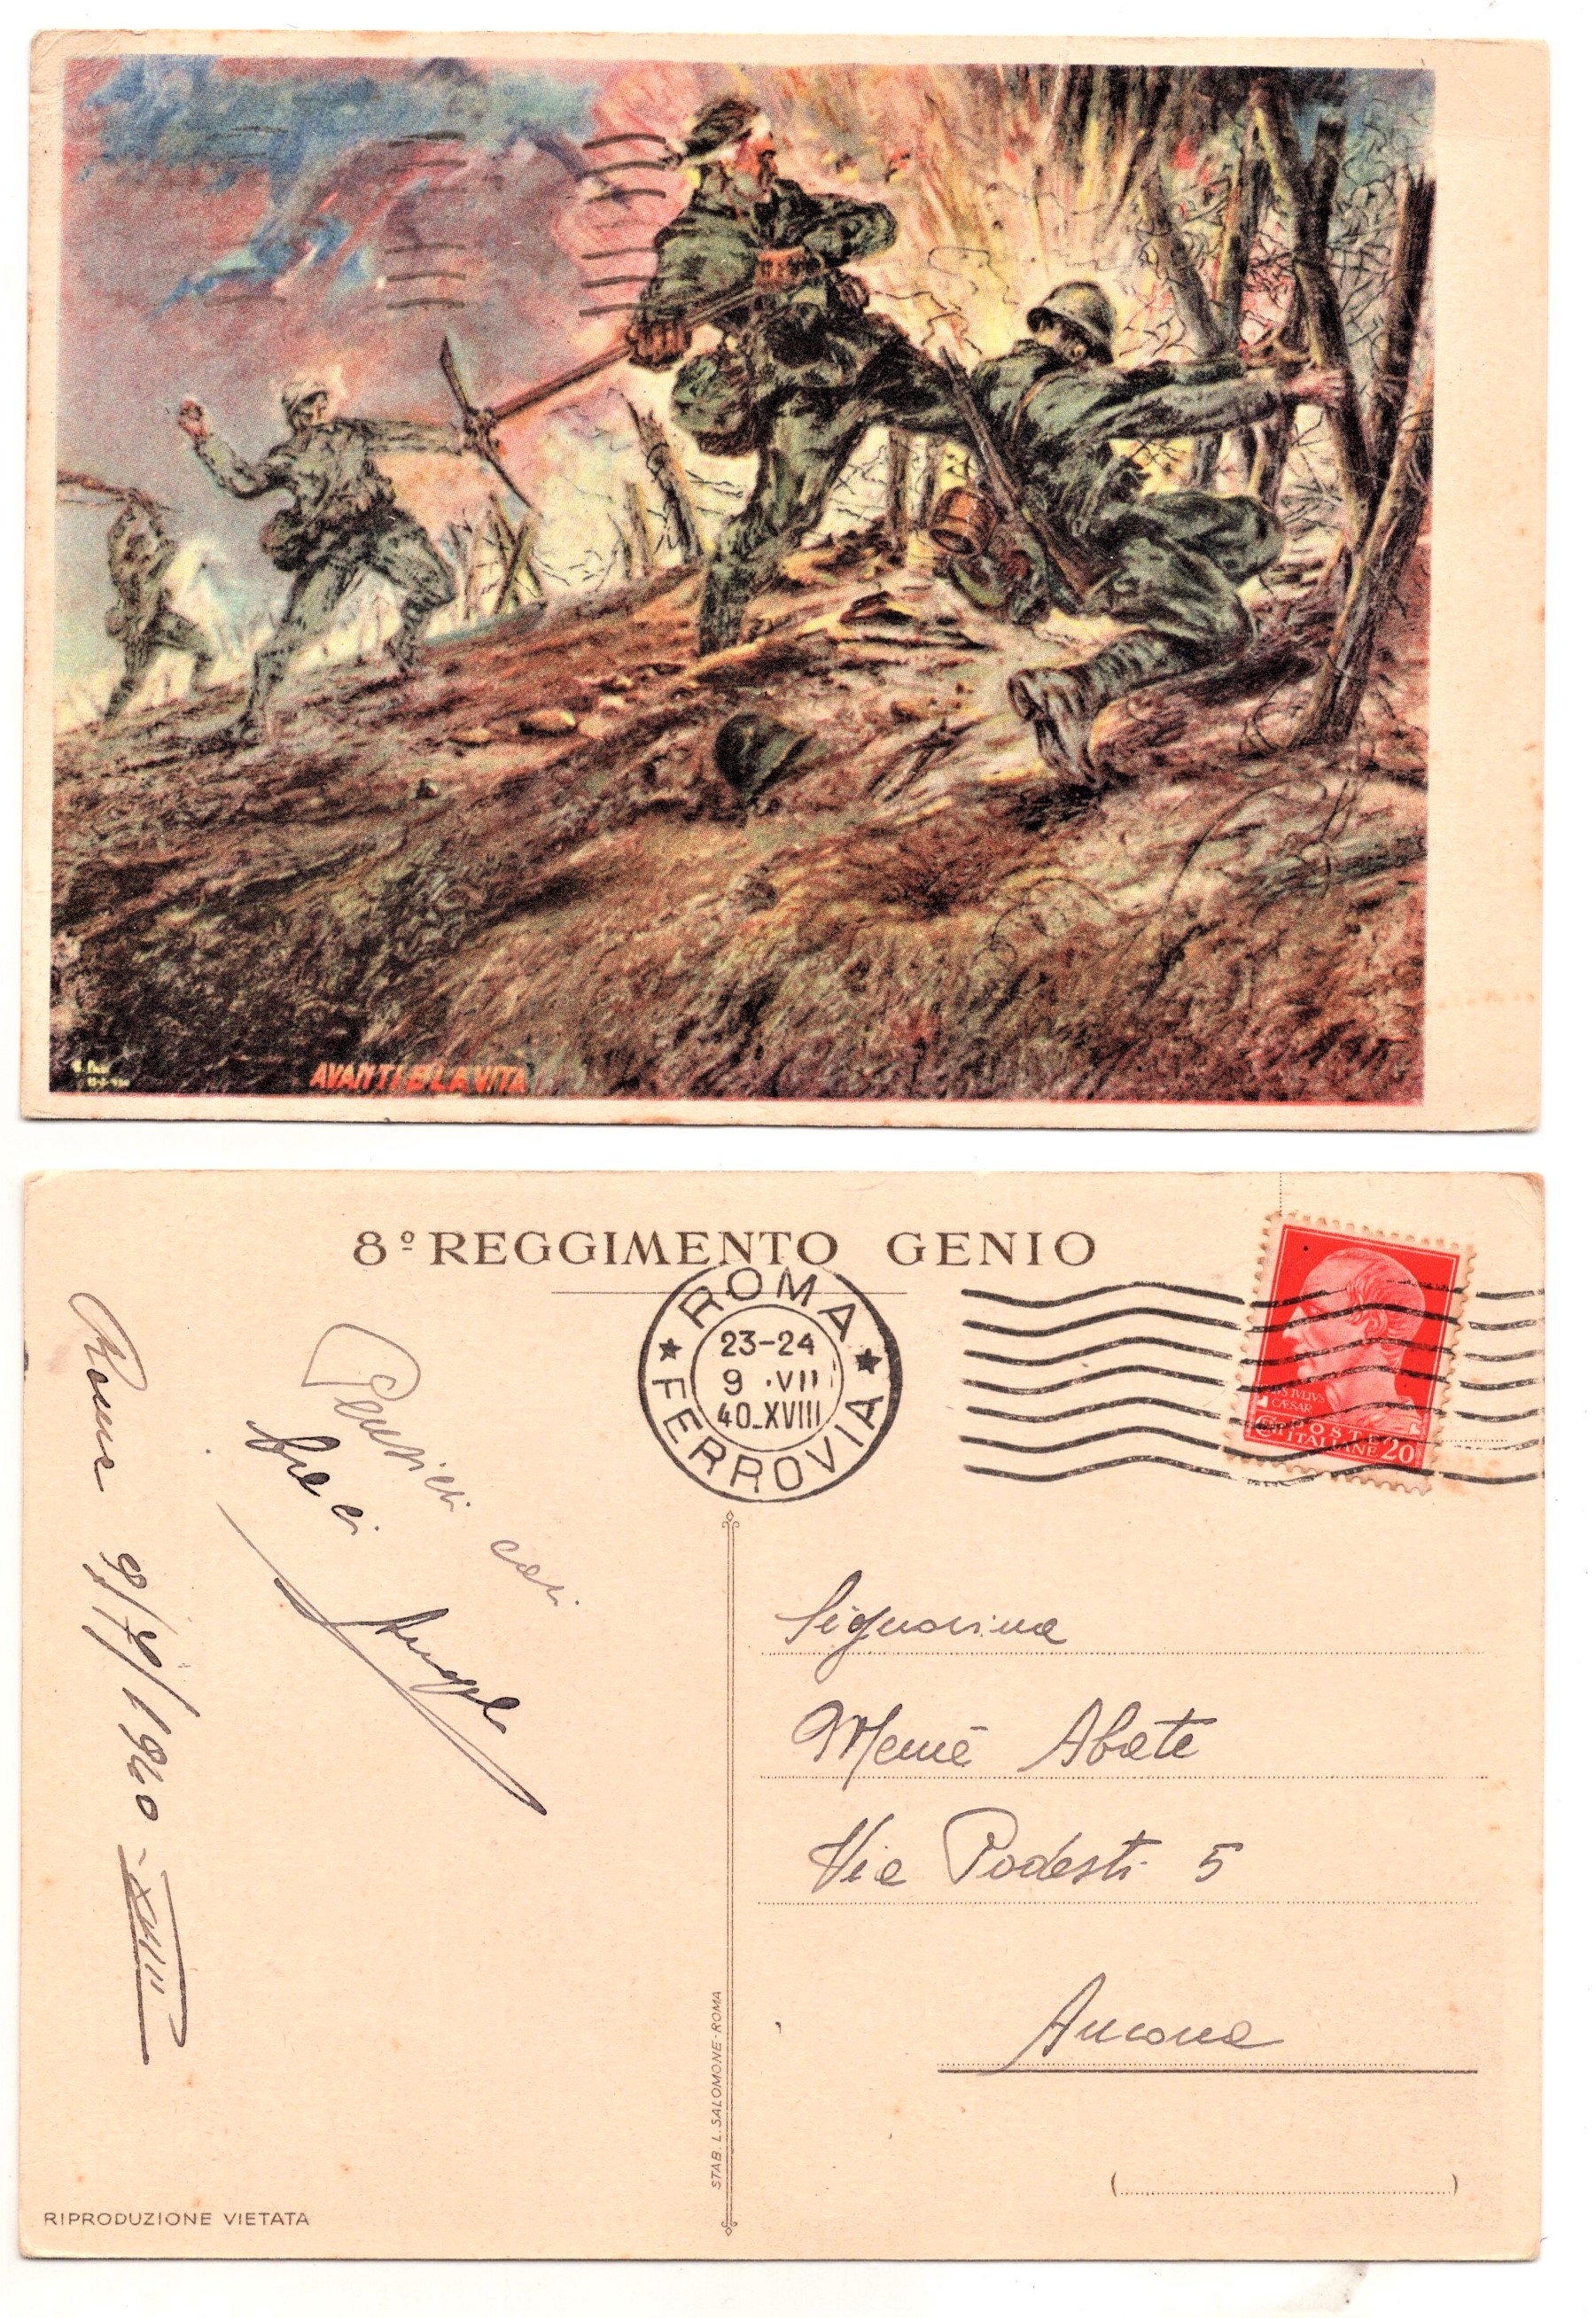 AVANTI È LA VITA
8º REGGIMENTO GENIO
ROMA
23-24
9 .VII
40_XVIII
FERROVIA
IVLIVS
CÆSAR
POSTE
ITALIANE
Cmi 20
Roma 9/7/1940-XVIII
Pensieri cari
baci
Signorina
Memè Abate
Via Podesti 5
Ancona
( )
STAB. L. SALOMONE-ROMA
RIPRODUZIONE VIETATA